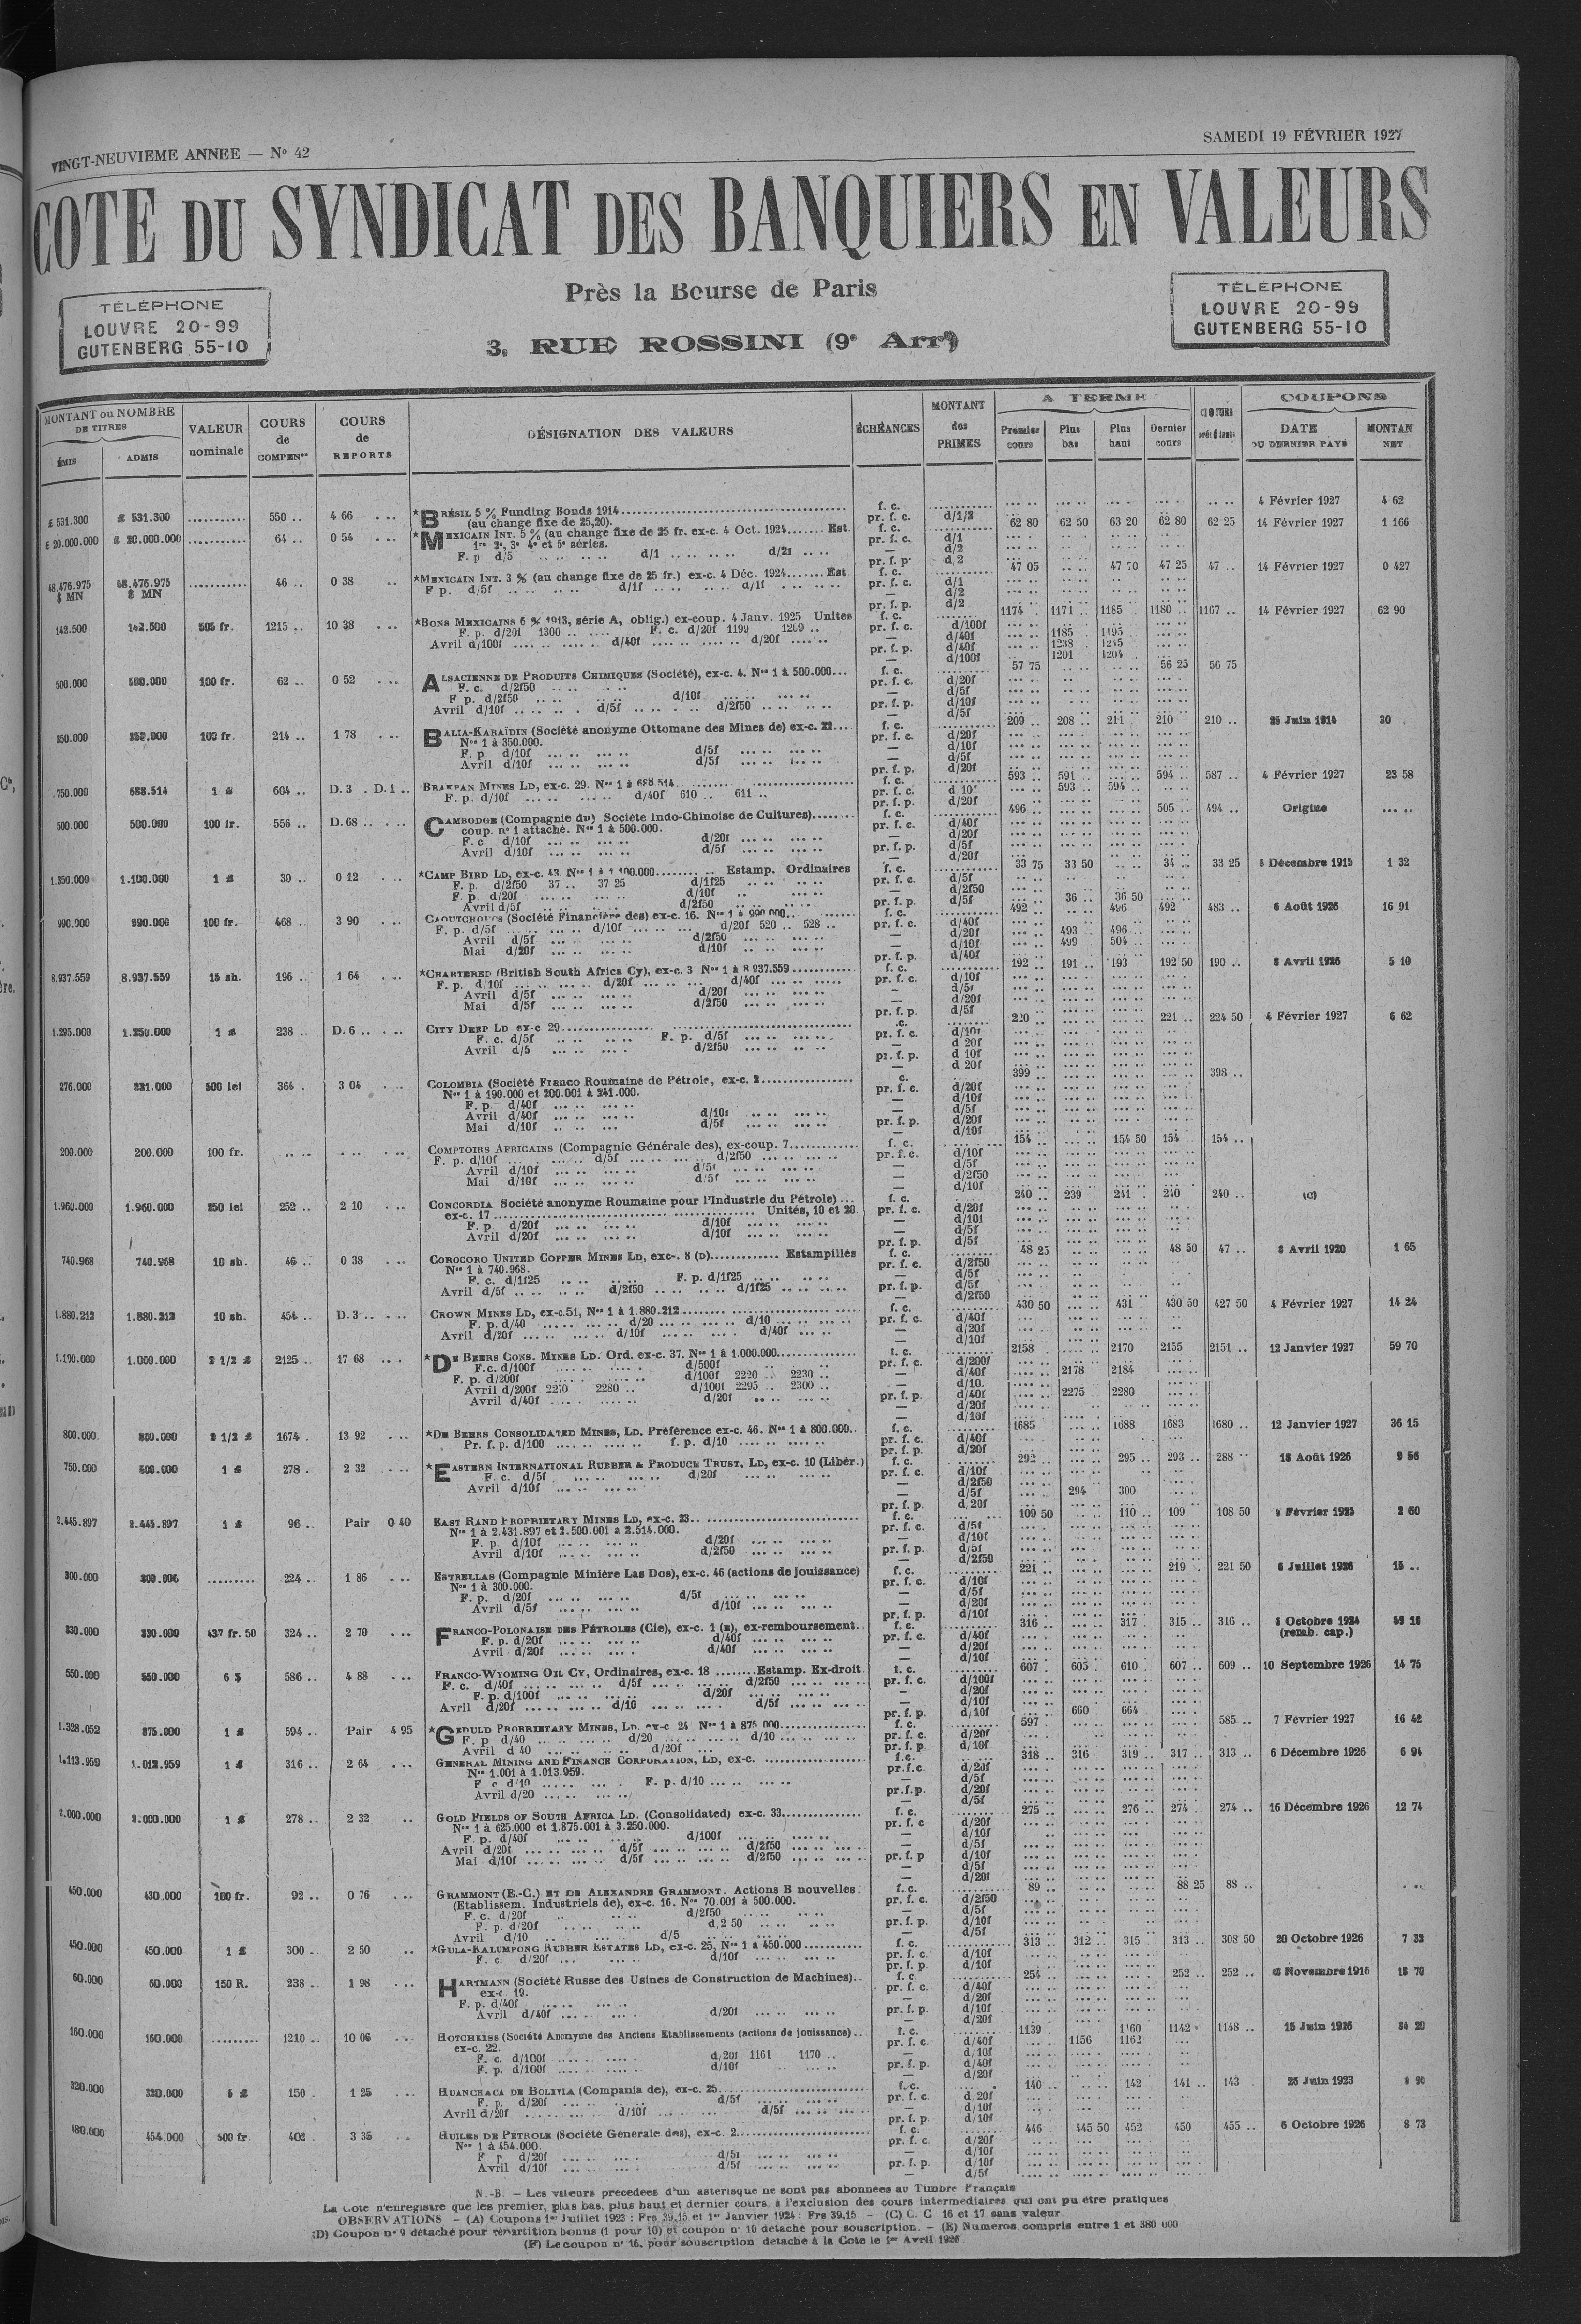 VINGT-NEUVIEME ANNEE — No 42
SAMEDI 19 FÉVRIER 1927
COTE DU SYNDICAT DES BANQUIERS EN VALEURS
Près la Bourse de Paris
3, RUE ROSSINI (9e Arrt)
TÉLÉPHONE
LOUVRE 20-99
GUTENBERG 55-10
TÉLÉPHONE
LOUVRE 20-99
GUTENBERG 55-10
MONTANT ou NOMBRE DE TITRES
ÉMIS ADMIS
VALEUR nominale
COURS de COMPENon
COURS de REPORTS
DÉSIGNATION DES VALEURS
ÉCHÉANCES
MONTANT des PRIMES
A TERME
Premier cours Plus bas Plus haut Dernier cours
COUPONS
DATE DU DERNIER PAYÉ
MONTAN NET
£ 531.300 £ 531.300 ........... 550 .. 4 66 *BRÉSIL 5 % Funding Bonds 1914 f. c. 4 Février 1927 4 62
(au change fixe de 25,20). pr. f. c. d/1/2
£ 20.000.000 £ 20.000.000 ........... 64 .. 0 54 *MEXICAIN INT. 5 % (au change fixe de 25 fr. ex-c. 4 Oct. 1924....... Est. f. c. 62 80 62 50 63 20 62 80 62 25 14 Février 1927 1 166
1re 2e, 3e 4e et 5e séries. pr. f. c. d/1
F. p d/5 d/1 d/2f — d/2
pr. f. p. d/2
48.476.975 $ MN 48.476.975 $ MN ........... 46 .. 0 38 *MEXICAIN INT. 3 % (au change fixe de 25 fr.) ex-c. 4 Déc. 1924....... Est f. c. 47 05 47 70 47 25 47 .. 14 Février 1927 0 427
F p. d/5f d/1f d/1f pr. f. c. d/1
— d/2
pr. f. p. d/2
142.500 142.500 505 fr. 1215 .. 10 38 *BONS MEXICAINS 6 % 1913, série A, oblig.) ex-coup. 4 Janv. 1925 Unites f. c. 1174 .. 1171 .. 1185 1180 .. 1167 .. 14 Février 1927 62 90
F. p. d/20f 1300 F. c. d/20f 1199 1209 .. pr. f. c. d/100f
Avril d/100f d/40f d/20f — d/40f 1185 1195
pr. f. p. d/40f 1238 1245
— d/100f 1201 1204
500.000 500.000 100 fr. 62 .. 0 52 ALSACIENNE DE PRODUITS CHIMIQUES (Société), ex-c. 4. Nos 1 à 500.000... f. c. 57 75 56 25 56 75
F. c. d/2f50 pr. f. c. d/20f
F p. d/2f50 d/10f — d/5f
Avril d/10f d/5f d/2f50 pr. f. p. d/10f
— d/5f
350.000 350.000 100 fr. 214 .. 1 78 BALIA-KARAÏDIN (Société anonyme Ottomane des Mines de) ex-c. 22... f. c. 209 .. 208 .. 211 210 210 .. 25 Juin 1914 30
Nos 1 à 350.000. pr. f. c. d/20f
F. p d/10f d/5f — d/10f
Avril d/10f d/5f — d/5f
pr. f. p. d/20f
750.000 688.514 1 £ 604 .. D. 3 . D. 1 .. BRAKPAN MINES LD, ex-c. 29. Nos 1 à 688.514 f. c. 593 .. 591 .. 594 .. 587 .. 4 Février 1927 23 58
F. p. d/10f d/40f 610 .. 611 .. pr. f. c. d 10f 593 .. 594 ..
pr. f. p. d/20f
500.000 500.000 100 fr. 556 .. D. 68 .. CAMBODGE (Compagnie du) Société Indo-Chinoise de Cultures)........ f. c. 496 505 .. 494 .. Origine
coup. no 1 attaché. Nos 1 à 500.000. pr. f. c. d/40f
F. c d/10f d/20f — d/20f
Avril d/10f d/5f pr. f. p. d/5f
— d/20f
1.350.000 1.100.000 1 £ 30 .. 0 12 *CAMP BIRD LD, ex-c. 43 Nos 1 à 1 100.000 Estamp. Ordinaires f. c. 33 75 33 50 34 .. 33 25 6 Décembre 1915 1 32
F. p. d/2f50 37 .. 37 25 d/1f25 pr. f. c. d/5f
F. p. d/20f d/10f — d/2f50
Avril d/5f d/2f50 pr. f. p. d/5f 36 .. 36 50
990.000 990.000 100 fr. 468 .. 3 90 CAOUTCHOUCS (Société Financière des) ex-c. 16. Nos 1 à 990 000.. f. c. 492 .. 496 492 483 .. 6 Août 1926 16 91
F. p. d/5f d/10f d/20f 520 .. 528 .. pr. f. c. d/40f
Avril d/5f d/2f50 — d/20f 493 .. 496 ..
Mai d/20f d/10f — d/10f 499 504 ..
pr. f. p. d/40f
8.937.559 8.937.559 15 sh. 196 .. 1 64 *CHARTERED (British South Africa Cy), ex-c. 3 Nos 1 à 8 937.559 f. c. 192 .. 191 .. 193 192 50 190 .. 8 Avril 1926 5 10
F. p. d/10f d/20f d/40f pr. f. c. d/10f
Avril d/5f d/20f — d/5f
Mai d/5f d/2f50 — d/20f
pr. f. p. d/5f
1.295.000 1.250.000 1 £ 238 .. D. 6 .. CITY DEEP LD ex-c 29 220 221 .. 224 50 4 Février 1927 6 62
F. c. d/5f F. p. d/5f pr. f. c. d/10f
Avril d/5 d/2f50 — d 20f
pr. f. p. d 10f
— d 20f
276.000 231.000 500 lei 364 . 3 04 COLOMBIA (Société Franco Roumaine de Pétrole, ex-c. 2 399 .. 398 ..
Nos 1 à 190.000 et 200.001 à 241.000. pr. f. c. d/20f
F. p. d/40f — d/10f
Avril d/40f d/10f — d/5f
Mai d/10f d/5f pr. f. p. d/20f
— d/10f
200.000 200.000 100 fr. COMPTOIRS AFRICAINS (Compagnie Générale des), ex-coup. 7 f. c. 154 .. 154 50 154 154 ..
F. p. d/10f d/5f d/2f50 pr. f. c. d/10f
Avril d/10f d/5f — d/5f
Mai d/10f d/5f — d/2f50
— d/10f
1.960.000 1.960.000 250 lei 252 .. 2 10 CONCORDIA Société anonyme Roumaine pour l'Industrie du Pétrole) ... f. c. 240 .. 239 241 240 240 .. (C)
ex-c. 17 Unités, 10 et 20. pr. f. c. d/20f
F. p d/20f d/10f — d/10f
Avril d/20f d/10f — d/5f
pr. f. p. d/5f
740.968 740.968 10 sh. 46 .. 0 38 COROCORO UNITED COPPER MINES LD, exc-. 8 (D) Estampillés f. c. 48 25 48 50 47 .. 8 Avril 1920 1 65
Nos 1 à 740.968. pr. f. c. d/2f50
F. c. d/1f25 F. p. d/1f25 — d/5f
Avril d/5f d/2f50 d/1f25 pr. f. p. d/5f
— d/2f50
1.880.212 1.880.212 10 sh. 454 .. D. 3 .. CROWN MINES LD, ex-c.51, Nos 1 à 1.880.212 f. c. 430 50 431 430 50 427 50 4 Février 1927 14 24
F. p. d/40 d/20 d/10 pr. f. c. d/40f
Avril d/20f d/10f d/40f — d/20f
— d/10f
1.190.000 1.000.000 2 1/2 £ 2125 .. 17 68 *DE BEERS CONS. MINES LD. Ord. ex-c. 37. Nos 1 à 1.000.000 f. c. 2158 2170 2155 2151 .. 12 Janvier 1927 59 70
F.c. d/100f d/500f pr. f. c. d/200f
F. p. d/200f d/100f 2220 .. 2230 .. — d/40f 2178 2184
Avril d/200f 2270 2280 .. d/100f 2295 .. 2300 .. — d/10.
Avril d/40f d/20f pr. f. p. d/40f 2275 2280
— d/20f
— d/10f
800.000 800.000 2 1/2 £ 1674 .. 13 92 *DE BEERS CONSOLIDATED MINES, LD. Préférence ex-c. 46. Nos 1 à 800.000.. f. c. 1685 1688 1683 1680 .. 12 Janvier 1927 36 15
Pr. f. p. d/100 f. p. d/10 pr. f. c. d/40f
pr. f. p. d/20f
750.000 500.000 1 £ 278 . 2 32 *EASTERN INTERNATIONAL RUBBER & PRODUCE TRUST, LD, ex-c. 10 (Libér.) f. c. 292 295 .. 293 .. 288 .. 18 Août 1926 9 56
F. c. d/5f d/20f pr. f. c. d/10f
Avril d/10f — d/2f50
— d/5f 294 300
pr. f. p. d, 20f
2.445.897 2.445.897 1 £ 96 .. Pair 0 40 EAST RAND PROPRIETARY MINES LD, ex-c. 23 f. c. 109 50 110 .. 109 108 50
Nos 1 à 2.431.897 et 2.500.001 à 2.514.000. pr. f. c. d/5f
F. p. d/10f d/20f — d/10f
Avril d/10f d/2f50 pr. f. p. d/5f
— d/2f50
300.000 300.000 224 .. 1 86 ESTRELLAS (Compagnie Minière Las Dos), ex-c. 46 (actions de jouissance) f. c. 221 219 221 50 6 Juillet 1926 15 ..
Nos 1 à 300.000. pr. f. c. d/10f
F. p. d/20f d/5f — d/5f
Avril d/5f d/10f — d/20f
pr. f. p. d/10f
330.000 330.000 437 fr. 50 324 .. 2 70 FRANCO-POLONAISE DES PÉTROLES (Cie), ex-c. 1 (E), ex-remboursement.. f. c. 316 317 315 .. 316 .. Octobre 1924
(remb. cap.)
F. p. d/20f d/40f pr. f. c. d/40f
Avril d/20f d/40f — d/20f
— d/10f
550.000 550.000 6 $ 586 .. 4 88 FRANCO-WYOMING OIL CY, Ordinaires, ex-c. 18 ........Estamp. Ex-droit f. c. 607 605 610 607 .. 609 .. 10 Septembre 1926 14 75
F. c. d/40f d/5f d/2f50 pr. f. c. d/100f
F. p. d/100f d/20f — d/20f
Avril d/20f d/10 d/5f — d/10f
pr. f. p. d/10f 660 664
1.328.052 875.000 1 £ 594 .. Pair 4 95 *GEDULD PRORRIETARY MINES, LD. ex-c 24 Nos 1 à 875 000 f. c. 597 585 .. 7 Février 1927 16 42
F. p d/40 d/20 d/10 pr. f. c. d/20f
Avril d 40 d/20f pr. f. p. d/10f
1.113.959 1.013.959 1 £ 316 .. 2 64 GENERAL MINING AND FINANCE CORPORATION, LD, ex-c. f.c. 318 .. 316 319 .. 317 .. 313 .. 6 Décembre 1926 6 94
Nos 1.001 à 1.013.959. pr.f.c. d/20f
F c d/10 F. p. d/10 — d/5f
Avril d/20 pr.f.p. d/20f
— d/5f
2.000.000 2.000.000 1 £ 278 .. 2 32 GOLD FIELDS OF SOUTH AFRICA LD. (Consolidated) ex-c. 33 f. c. 275 276 .. 274 .. 274 .. 16 Décembre 1926 12 74
Nos 1 à 625.000 et 1.875.001 à 3.250.000. pr. f. c d/20f
F. p. d/40f d/100f — d/10f
Avril d/20f d/5f d/2f50 — d/5f
Mai d/10f d/5f d/2f50 pr. f. p d/10f
— d/5f
— d/20f
450.000 430.000 100 fr. 92 .. 0 76 GRAMMONT (E.-C.) ET DE ALEXANDRE GRAMMONT. Actions B nouvelles. f. c. 89 .. 88 25 88 ..
(Etablissem. Industriels de), ex-c. 16. Nos 70.001 à 500.000. pr. f. c. d/2f50
F. c. d/20f d/2f50 — d/5f
F. p. d/20f d,2 50 pr. f. p. d/10f
Avril d/10 d/5 — d/5f
450.000 450.000 1 £ 300 .. 2 50 *GULA-KALUMPONG RUBBER ESTATES LD, ex-c. 25, Nos 1 à 450.000 f. c. 313 312 315 313 .. 308 50 20 Octobre 1926 7 33
F. c. d/20f d/10f pr. f. c. d/10f
pr. f. p. d/10f
60.000 60.000 150 R. 238 .. 1 98 HARTMANN (Société Russe des Usines de Construction de Machines).. f. c 254 252 .. 252 .. Novembre 1916 18 70
ex-c. 19. pr. f. c. d/40f
F. p. d/40f — d/20f
Avril d/40f d/20f pr. f. p. d/10f
— d/20f
160.000 160.000 1210 .. 10 08 HOTCHKISS (Société Anonyme des Anciens Etablissements (actions de jouissance) .. f. c. 1139 1160 1142 1148 .. 15 Juin 1926 34 20
ex-c. 22. pr. f. c. d/40f 1156 1162
F. c. d/100f d/20f 1161 1170 .. — d/10f
F. p. d/100f d/10f pr. f. p. d/40f
— d/20f
320.000 320.000 5 £ 150 . 1 25 HUANCHACA DE BOLIVIA (Compania de), ex-c. 25 f. c. 140 142 141 .. 143 26 Juin 1923
F. p. d/20f d/5f pr. f. c. d 20f
Avril d/20f d/10f d/5f — d/10f
pr. f. p. d/10f
480.000 454.000 500 fr. 402 3 35 HUILES DE PETROLE (Société Générale des), ex-c. 2 f. c. 446 445 50 452 450 455 .. 6 Octobre 1926 8 73
Nos 1 à 454.000. pr. f. c. d/20f
F p. d/20f d/5f — d/10f
Avril d/10f d/5f pr. f. p. d/10f
— d/5f
N.-B. — Les valeurs précédées d'un astérisque ne sont pas abonnées au Timbre Français
La Cote n'enregistre que les premier, plus bas, plus haut et dernier cours, à l'exclusion des cours intermédiaires qui ont pu être pratiqués
OBSERVATIONS — (A) Coupons 1er Juillet 1923 : Frs 39,15 et 1er Janvier 1924 : Frs 39,15 — (C) C. C 16 et 17 sans valeur.
(D) Coupon no 9 détaché pour répartition bonus (1 pour 10) et coupon no 10 détaché pour souscription. — (E) Numéros compris entre 1 et 380 000
(F) Le coupon no 15, pour souscription détaché à la Cote le 1er Avril 1926